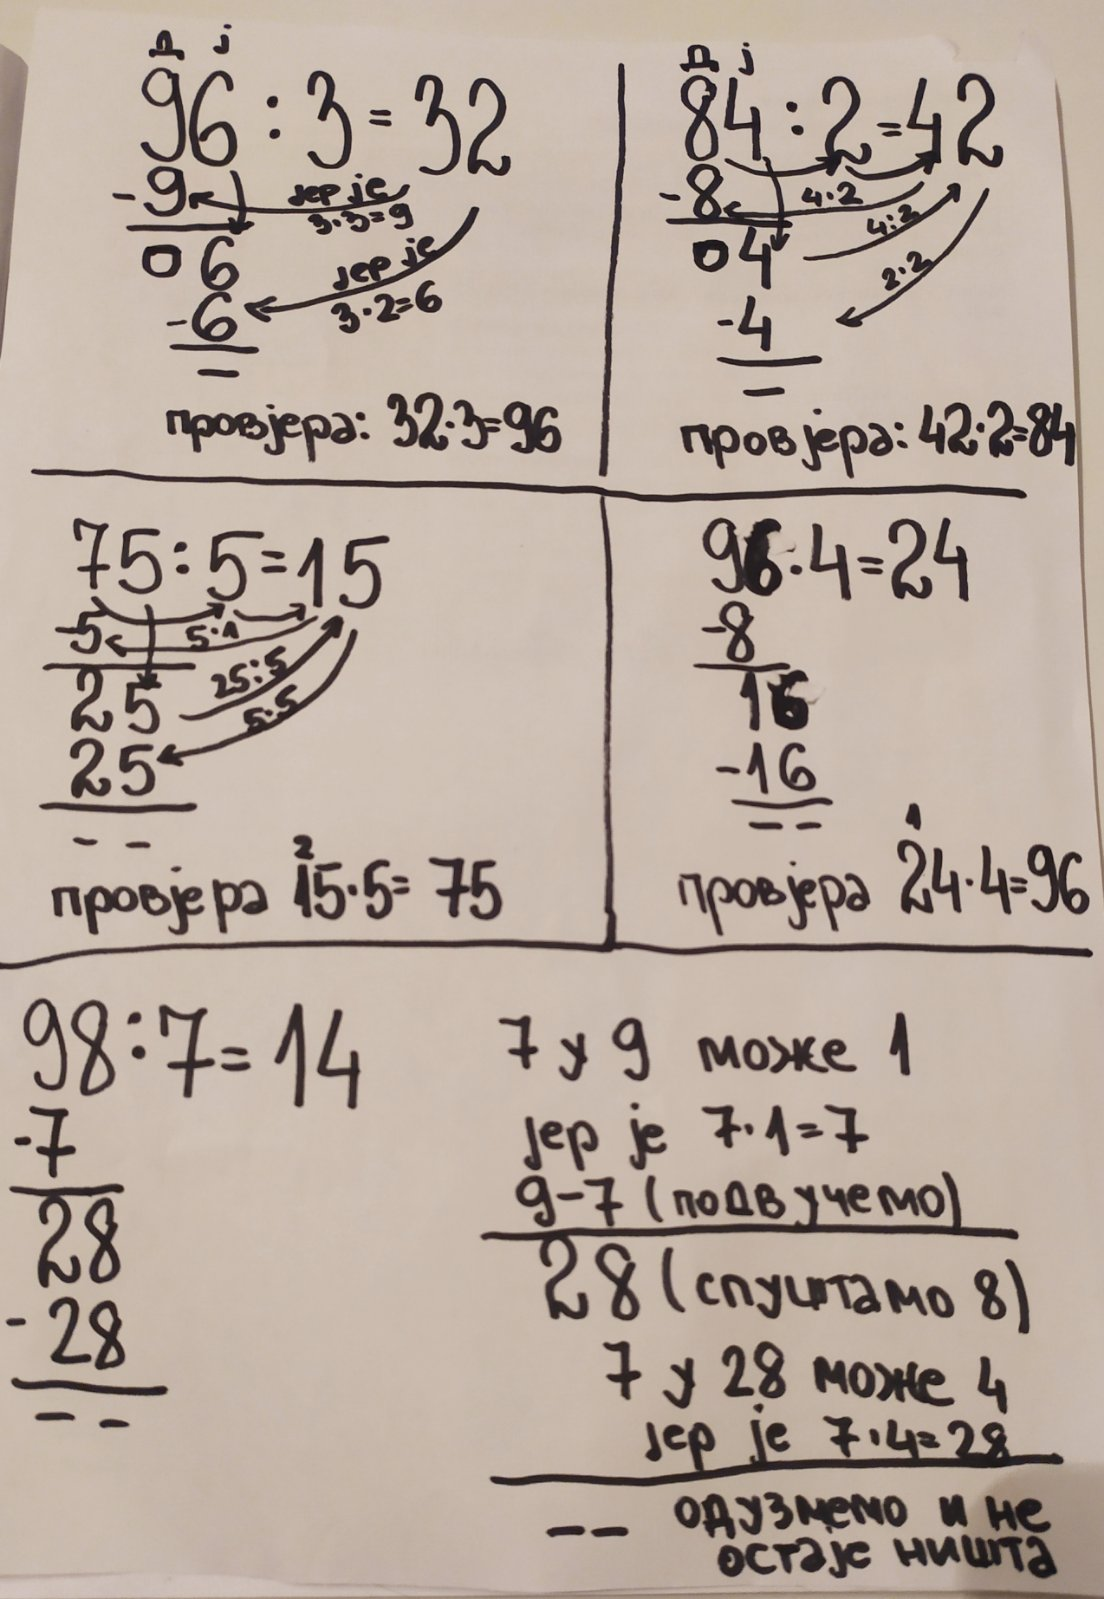 Д Ј
96 : 3 = 32
-9 јер је
3·3=9
06 јер је
-6 3·2=6
–
провјера: 32·3=96
Д Ј
84 : 2 = 42
-8 4·2
04 4:2
-4 2·2
–
провјера: 42·2=84
75 : 5 = 15
-5 5·1
25 25:5
25 5·5
– –
2
провјера 15·5= 75
96:4=24
-8
16
-16
– –
1
провјера 24·4=96
98:7=14
-7
28
-28
– –
7 у 9 може 1
јер је 7·1=7
9-7 (подвучемо)
28 (спуштамо 8)
7 у 28 може 4
јер је 7·4=28
– – одузмемо и не
остаје ништа